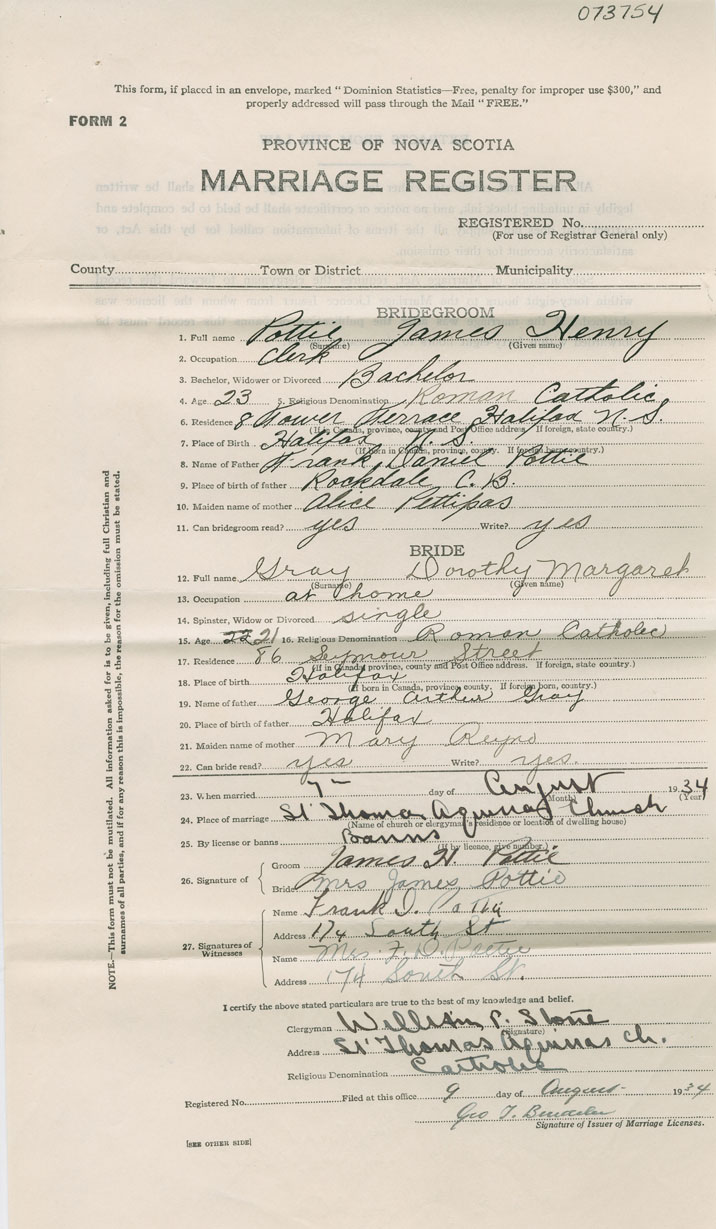 073754
This form, if placed in an envelope, marked "Dominion Statistics—Free, penalty for improper use $300," and
properly addressed will pass through the Mail "FREE."
FORM 2
PROVINCE OF NOVA SCOTIA
MARRIAGE REGISTER
REGISTERED No.
(For use of Registrar General only)
County Town or District Municipality
BRIDEGROOM
1. Full name Pottie James Henry
(Surname) (Given name)
2. Occupation Clerk
3. Bachelor, Widower or Divorced Bachelor
4. Age 23 5. Religious Denomination Roman Catholic
6. Residence 8 Tower Terrace, Halifax N.S.
(If in Canada, province, county and Post Office address. If foreign, state country.)
7. Place of Birth Halifax N.S.
(If born in Canada, province, county. If foreign born, country.)
8. Name of Father Frank Daniel Pottie
9. Place of birth of father Rockdale C.B.
10. Maiden name of mother Alice Pettipas
11. Can bridegroom read? yes Write? yes
BRIDE
12. Full name Gray Dorothy Margaret
(Surname) (Given name)
13. Occupation at home
14. Spinster, Widow or Divorced single
15. Age 22 21 16. Religious Denomination Roman Catholic
17. Residence 86 Seymour Street
(If in Canada, province, county and Post Office address. If foreign, state country.)
18. Place of birth Halifax
(If born in Canada, province, county. If foreign born, country.)
19. Name of father George Arthur Gray
20. Place of birth of father Halifax
21. Maiden name of mother Mary Reyno
22. Can bride read? yes Write? yes.
23. When married 7 day of August 1934
(Month) (Year)
24. Place of marriage St Thomas Aquinas Church
(Name of church or clergyman's residence or location of dwelling house)
25. By license or banns Banns
(If by licence, give number.)
26. Signature of
Groom James H. Pottie
Bride Mrs James Pottie
27. Signatures of Witnesses
Name Frank D. Pottie
Address 174 South St
Name Mrs. F. D. Pottie
Address 174 South St.
I certify the above stated particulars are true to the best of my knowledge and belief.
Clergyman William P. Stone
(Signature)
Address St Thomas Aquinas Ch.
Religious Denomination Catholic
Registered No. Filed at this office 9 day of August 1934
Geo T.
Signature of Issuer of Marriage Licenses.
[SEE OTHER SIDE]
NOTE.—This form must not be mutilated. All information asked for is to be given, including full Christian and
surnames of all parties, and if for any reason this is impossible, the reason for the omission must be stated.